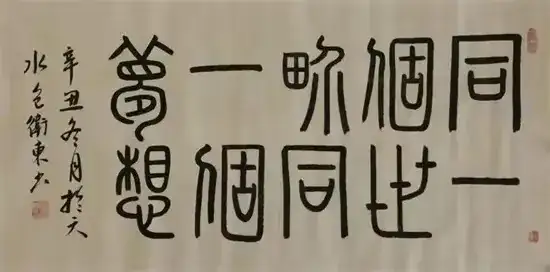 同一
個世
界同
一個
夢想
辛丑冬月於天
水包衛東书